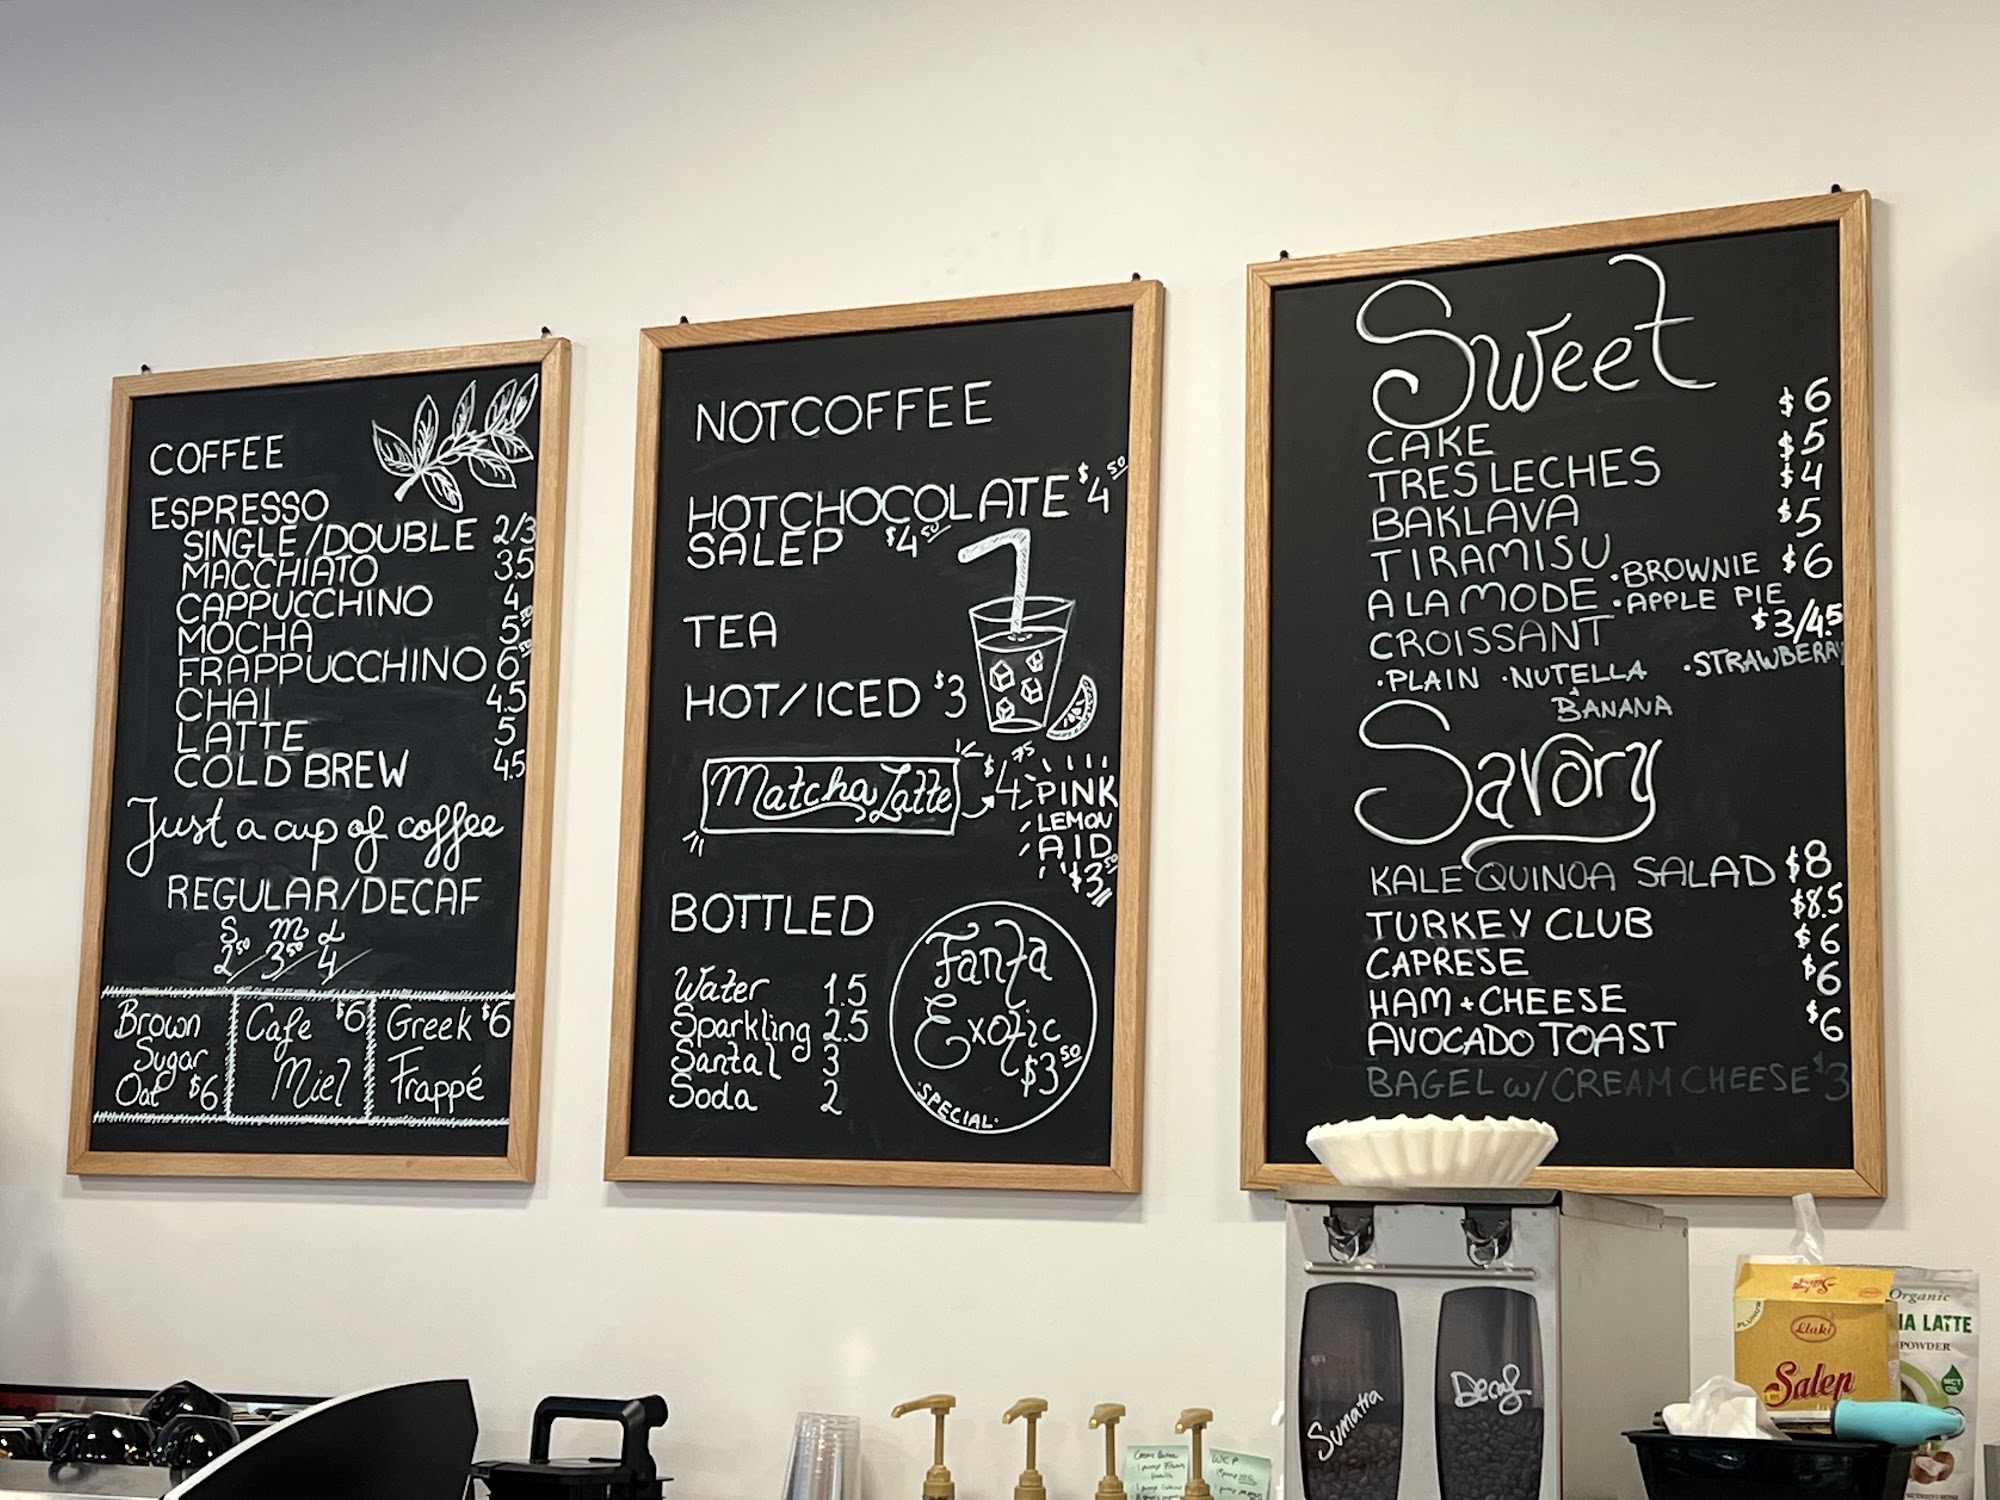 COFFEE
ESPRESSO
SINGLE/DOUBLE 2/3
MACCHIATO 3.5
CAPPUCCHINO 4
MOCHA 5.50
FRAPPUCCHINO 6.50
CHAI 4.5
LATTE 5
COLD BREW 4.5
Just a cup of coffee
REGULAR/DECAF
S M L
2.50 3.50 4
Brown Sugar Oat $6
Cafe Miel $6
Greek Frappé $6
NOTCOFFEE
HOT CHOCOLATE $4.50
SALEP $4.50
TEA
HOT/ICED $3
Matcha Latte $4.75
PINK
LEMON
AID
$3.50
BOTTLED
Water 1.5
Sparkling 2.5
Santal 3
Soda 2
Fanta
Exotic
$3.50
·SPECIAL·
Sweet
CAKE $6
TRES LECHES $5
BAKLAVA $4
TIRAMISU $5
A LA MODE ·BROWNIE ·APPLE PIE $6
CROISSANT $3/4.5
·PLAIN ·NUTELLA + BANANA ·STRAWBERRY
Savory
KALE QUINOA SALAD $8
TURKEY CLUB $8.5
CAPRESE $6
HAM + CHEESE $6
AVOCADO TOAST $6
BAGEL w/ CREAM CHEESE $3
Sumatra
Decaf
Salep
Organic
IA LATTE
POWDER
MCT OIL